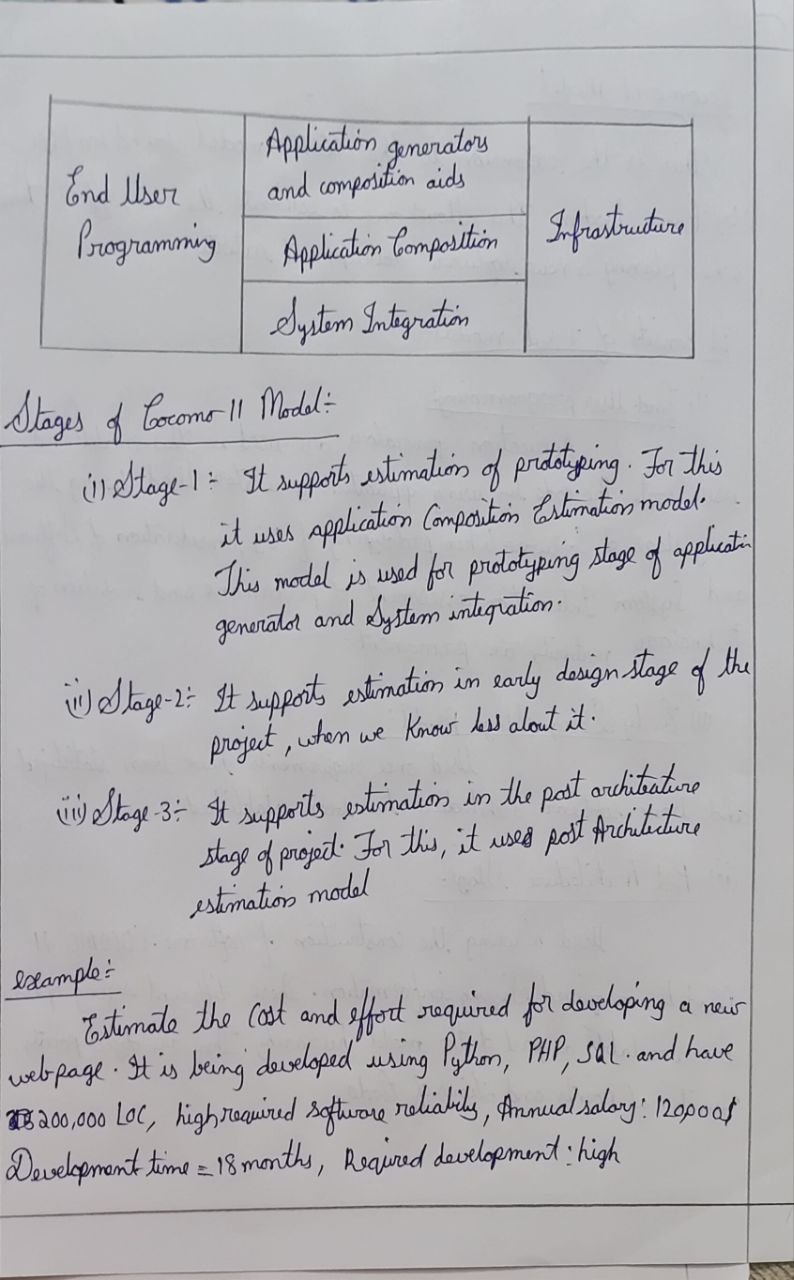 End User
Programming
Application generators
and composition aids
Application Composition
System Integration
Infrastructure
Stages of Cocomo II Model:-
(i) Stage-1:- It supports estimation of prototyping. For this
it uses application Composition Estimation model.
This model is used for prototyping stage of applicatin
generator and System integration.
(ii) Stage-2:- It supports estimation in early design stage of the
project, when we know less about it.
(iii) Stage-3:- It supports estimation in the post architecture
stage of project. For this, it uses post Architecture
estimation model
example:-
Estimate the Cost and effort required for developing a new
webpage. It is being developed using Python, PHP, SQL. and have
200,000 LOC, high required software reliability, Annual salary: 120,000$
Development time = 18 months, Required development: high